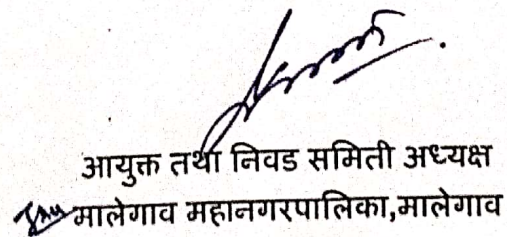 आयुक्त तथा निवड समिती अध्यक्ष
मालेगाव महानगरपालिका,मालेगाव